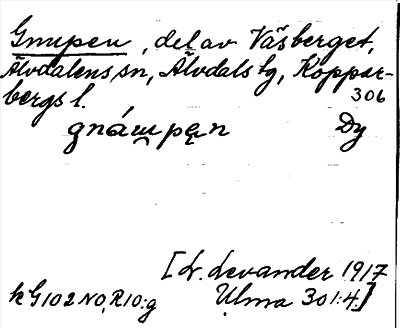 Gnupen, del av Väsberget,
Älvdalens sn, Älvdals tg, Koppar-
bergs l. 306
gnáɯpęn Dy
[L. Levander 1917
kG102NO, R10:g Ulma 301:4.]